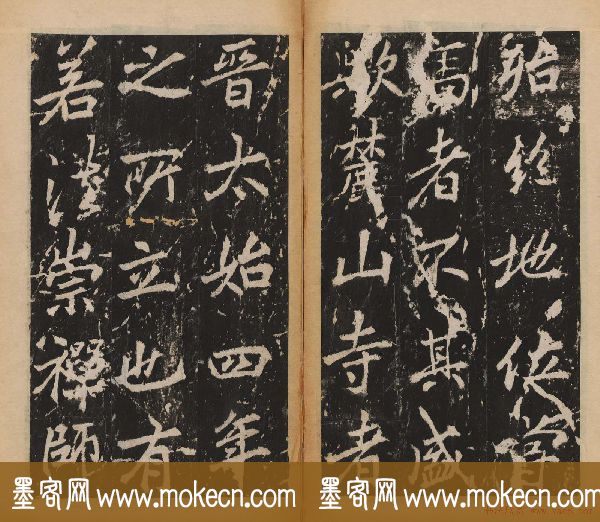 絕地俠
焉者不其盛
歟麓山寺者
晉太始四年
之所立也有
若法崇禪師
墨客网 www.mokecn.com 墨客网 www.mokecn.com